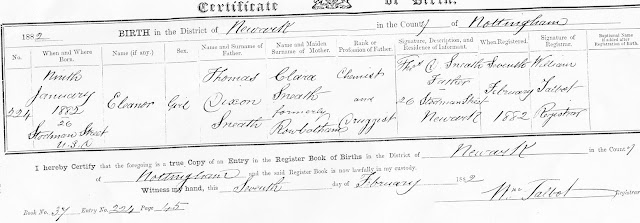 Certificate of Birth.
1882 BIRTH in the District of Newark in the County of Nottingham
No. When and Where Born. Name (if any). Sex. Name and Surname of Father. Name and Maiden Surname of Mother. Rank or Profession of Father. Signature, Description, and Residence of Informant. When Registered. Signature of Registrar. Baptismal Name if added after Registration of Birth.
Ninth Thomas Clara Chemist Thos. C Sneath Seventh William
January Dixon Sneath and Father February Talbot
224 1882 Eleanor Girl formerly 26 Stodman Street 1882 Registrar
26 Sneath Rowbotham Druggist Newark
Stodman Street
U.S.D
I hereby Certify that the foregoing is a true Copy of an Entry in the Register Book of Births in the District of Newark in the County
of Nottingham and the said Register Book is now lawfully in my custody.
Witness my hand, this Seventh day of February 1882
Book No. 37 Entry No. 224 Page 45 Wm Talbot Registrar